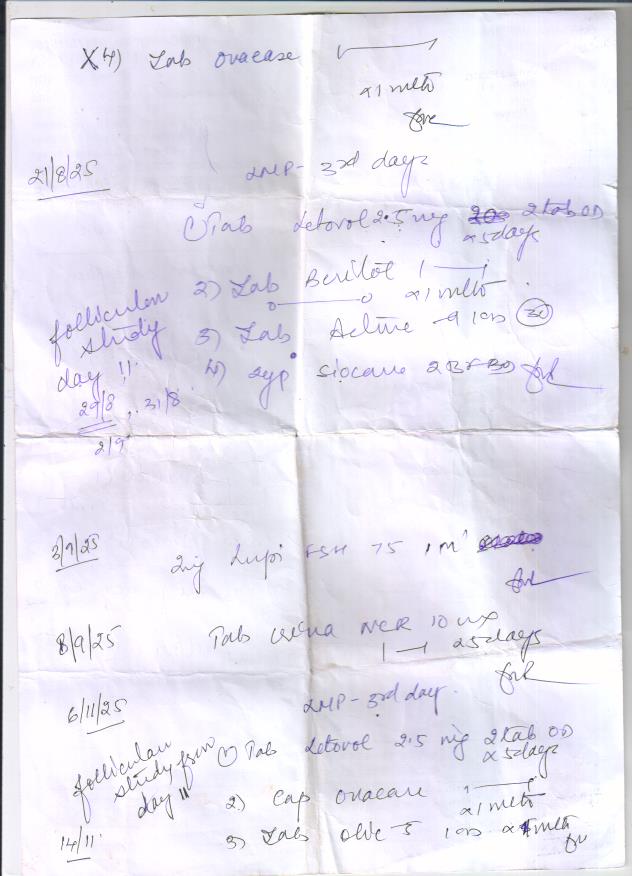 X4) Tab ovacare 1——1
x1 mth
21/8/25 LMP- 3rd days
1) Tab Letoval 2.5 mg 2 tab OD
x 5days
2) Tab 1——1
x1 mth
follicular
study
day 11
3) Tab Active 1 OD 30
4) syp
29/8, 31/8
2/9
3/9/25 Inj Lupi FSH 75 IM
8/9/25 Tab NCR 10 mg
1—1 x5days
6/11/25 LMP- 3rd day.
follicular
study from
day 11
1) Tab Letoval 2.5 mg 2 tab OD
x 5days
2) Cap ovacare 1——1
x1 mth
14/11 3) Tab 5 1 OD x1 mth